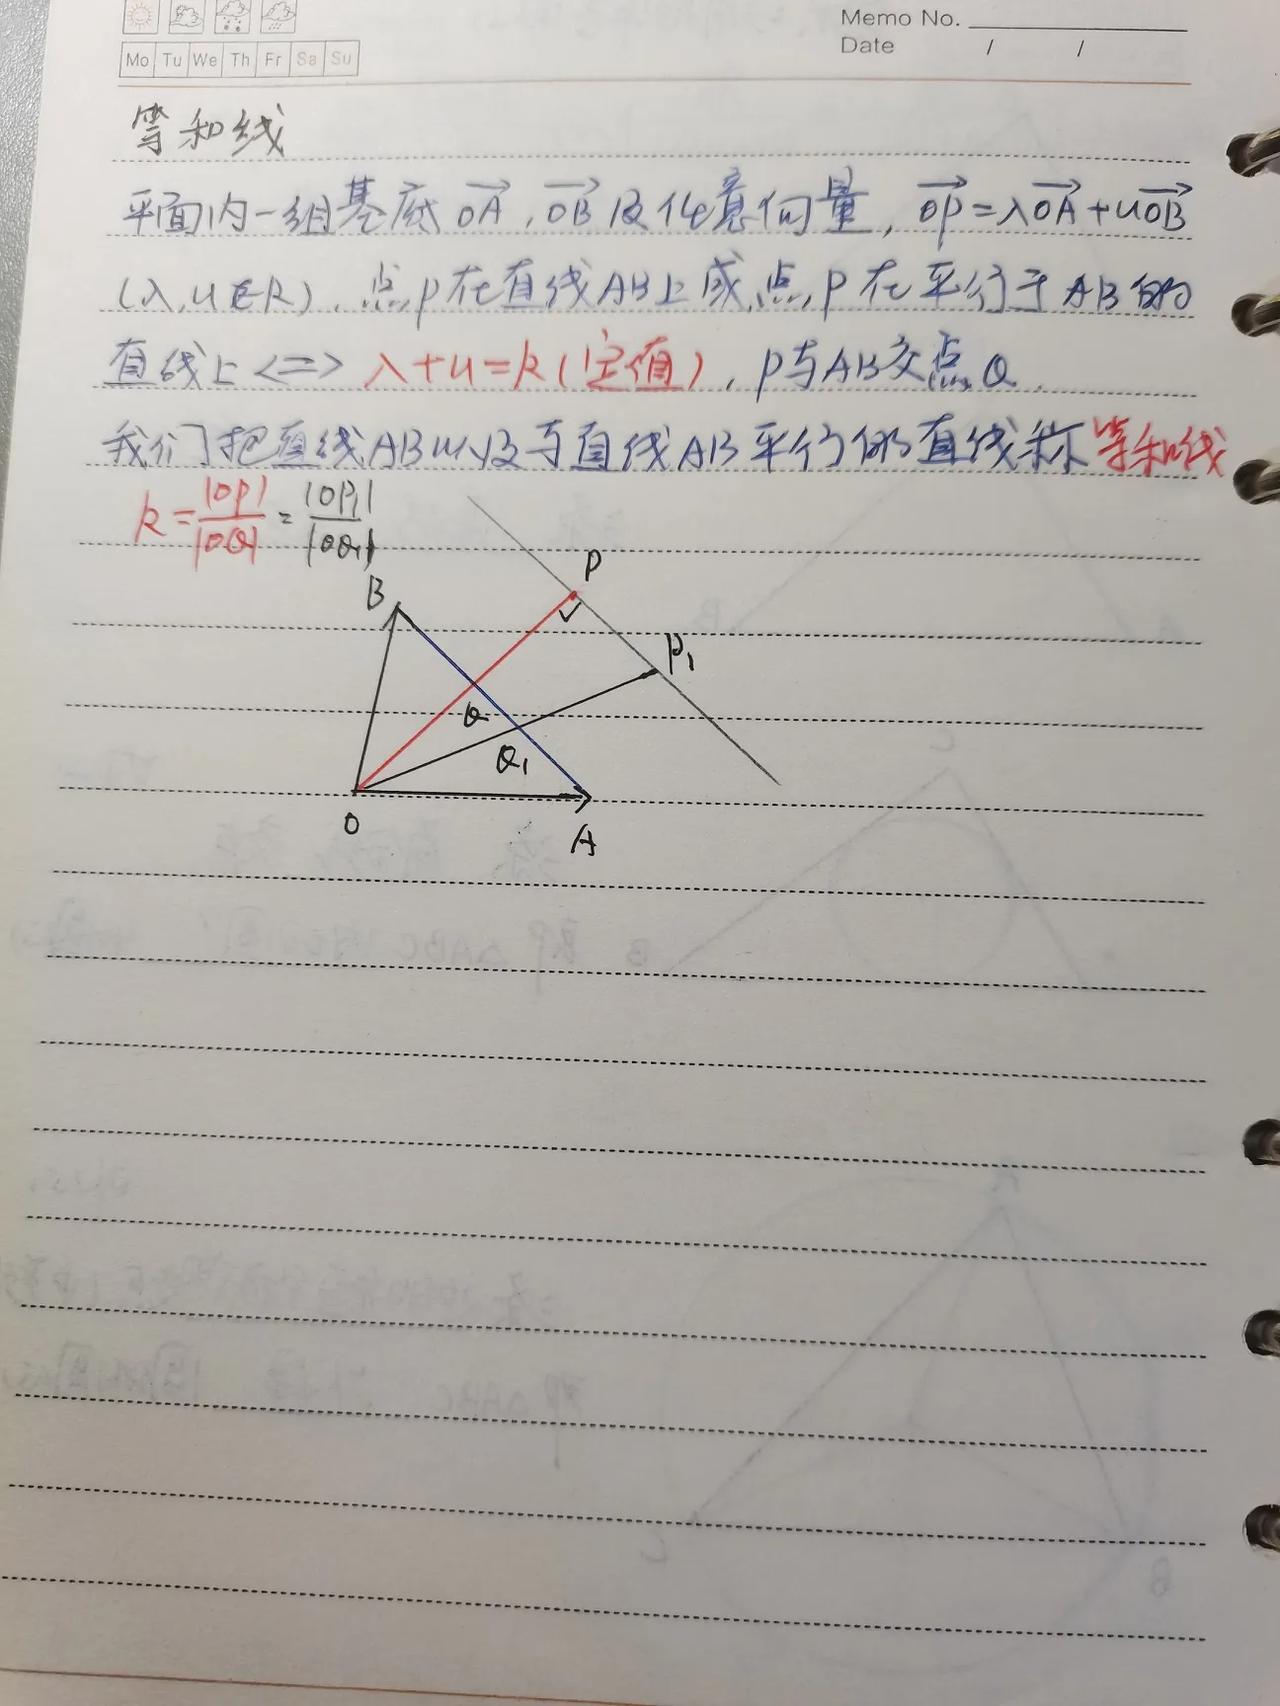 Memo No.
Date / /
Mo Tu We Th Fr Sa Su
等和线
平面内一组基底OA,OB及任意向量,OP=λOA+uOB
(λ,u∈R),点P在直线AB上或点P在平行于AB的
直线上<=>λ+u=k(定值),P与AB交点Q.
我们把直线AB以及与直线AB平行的直线称等和线
k=|OP|/|OQ|=|OP₁|/|OQ₁|
P
B
P₁
Q
Q₁
O
A